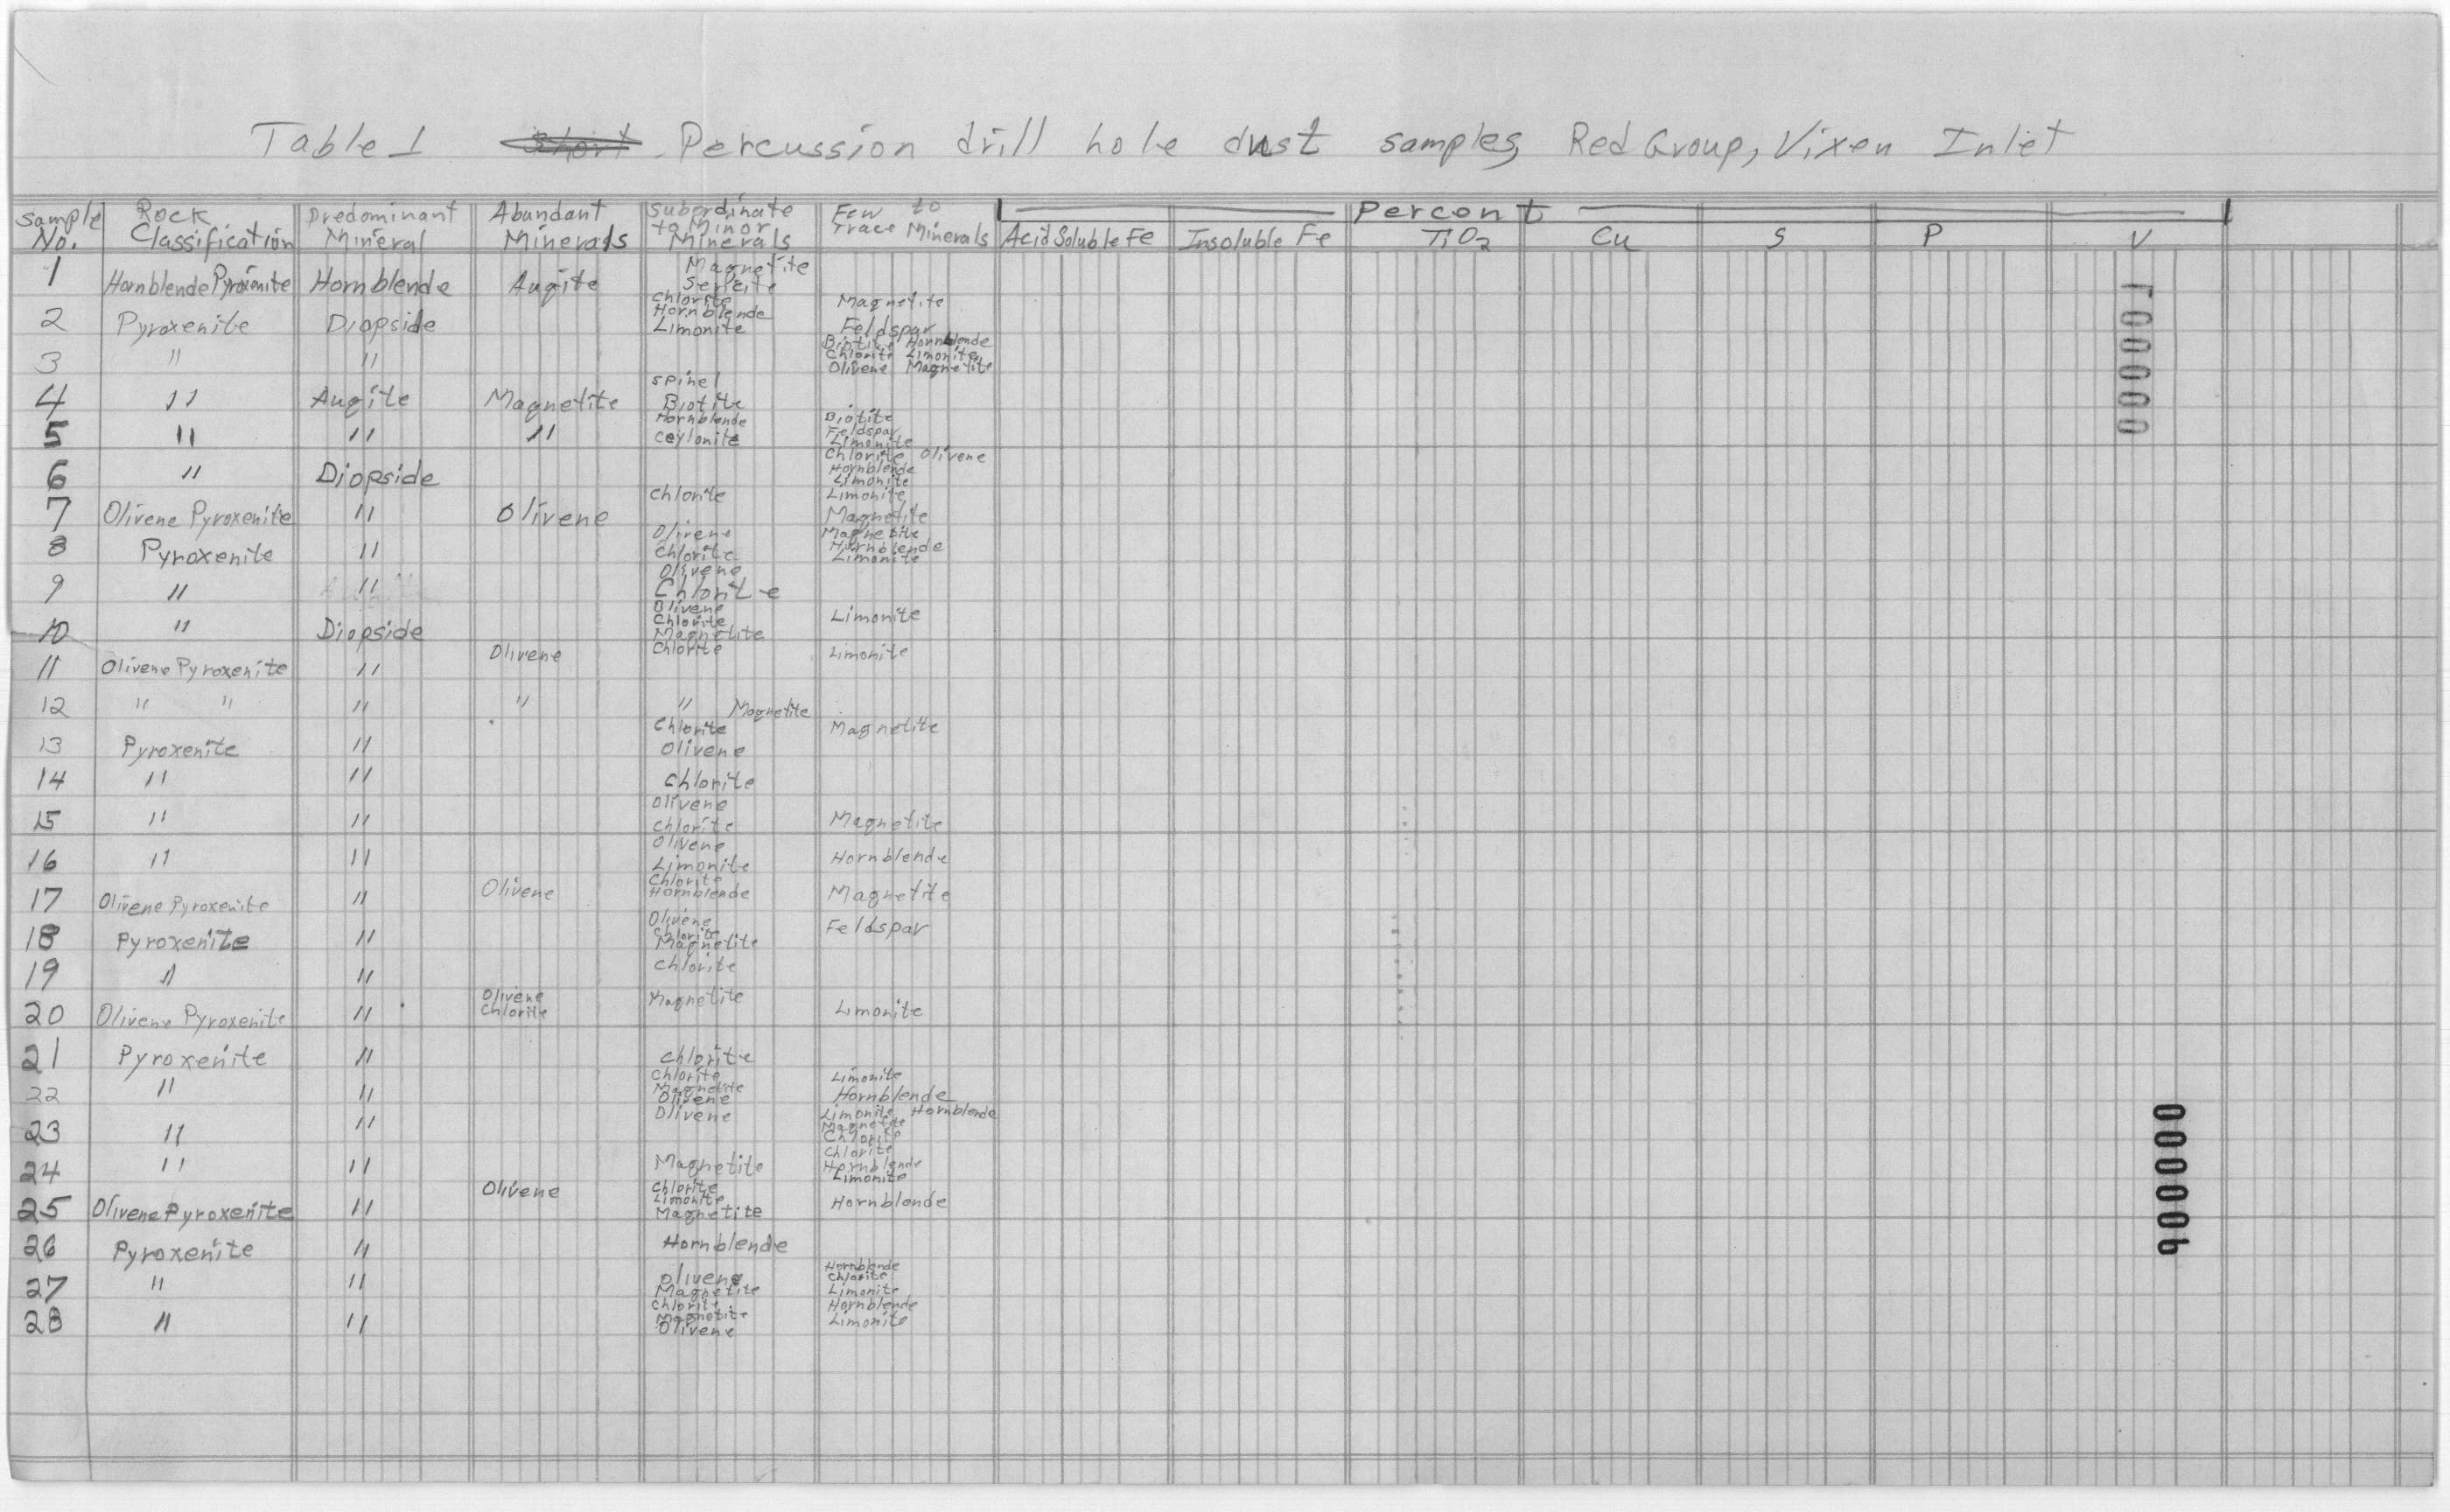 Table 1 Short Percussion drill hole dust samples, Red Group, Vixen Inlet
Sample No. Rock Classification Predominant Mineral Abundant Minerals Subordinate to Minor Minerals Few to Trace Minerals Percent Acid Soluble Fe Insoluble Fe TiO2 Cu S P V
1 Hornblende Pyroxenite Hornblende Augite Magnetite Sericite
2 Pyroxenite Diopside Chlorite Hornblende Limonite Magnetite Feldspar
3 " " Biotite Hornblende Chlorite Limonite Olivene Magnetite
4 " Augite Magnetite Spinel Biotite
5 " " " Hornblende Ceylonite Biotite Feldspar Limonite
6 " Diopside Chlorite Olivene Hornblende Limonite
7 Olivene Pyroxenite " Olivene Chlorite Limonite Magnetite
8 Pyroxenite " Olivene Chlorite Magnetite Hornblende Limonite
9 " " Olivene Chlorite
10 " Diopside Olivene Chlorite Magnetite Limonite
11 Olivene Pyroxenite " Olivene Chlorite Limonite
12 " " " " " Magnetite
13 Pyroxenite " Chlorite Olivene Magnetite
14 " " Chlorite
15 " " Olivene Chlorite Magnetite
16 " " Olivene Limonite Hornblende
17 Olivene Pyroxenite " Olivene Chlorite Hornblende Magnetite
18 Pyroxenite " Olivene Chlorite Magnetite Feldspar
19 " " Chlorite
20 Olivene Pyroxenite " Olivene Chlorite Magnetite Limonite
21 Pyroxenite " Chlorite
22 " " Chlorite Magnetite Olivene Limonite Hornblende
23 " " Olivene Limonite Hornblende Magnetite Chlorite
24 " " Magnetite Chlorite Hornblende Limonite
25 Olivene Pyroxenite " Olivene Chlorite Limonite Magnetite Hornblende
26 Pyroxenite " Hornblende
27 " " Olivene Magnetite Hornblende Chlorite Limonite
28 " " Chlorite Magnetite Olivene Hornblende Limonite
000006